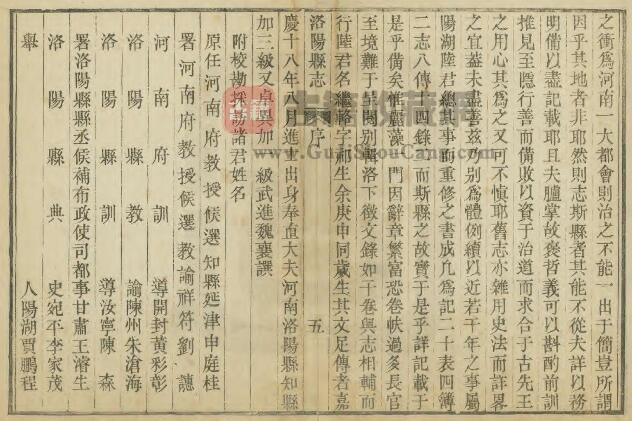 之衝爲河南一大都會則治之不能一出于簡豈所謂
因乎其地者非耶然則志斯縣者其能不從夫詳以務
明備以盡記載耶且夫臚掌故褒哲義可以斟酌前訓
推見至隱行善而備敗以資于治道而求合于古先王
之用心其爲之又可不愼耶舊志亦雜用史法而詳畧
之宜蓋未盡善茲乃別爲體例續以近若干年之事屬
陽湖陸君總其事而重修之書成凡爲記二十表四簿
二志八傳十四錄一而斯縣之故實于是乎詳記載于
是乎備矣惟麗藻一門因辭章繁富恐卷帙過多長官
至境難于呈閱別輯洛下徵文錄如干卷與志相輔而
行陸君名繼輅字祁生余庚申同歲生其文足傳者嘉
洛陽縣志 序 五
慶十八年八月進士出身奉直大夫河南洛陽縣知縣
加三級又貞異加一級武進魏襄譔
附校勘採訪諸君姓名
原任河南府教授候選知縣延津申庭桂
署河南府教授候選教諭祥符劉
河南府訓導開封黃彩彰
洛陽縣教諭陳州朱滄海
洛陽縣訓導汝寧陳森
署洛陽縣縣丞候補布政使司都事甘肅王濬生
洛陽縣典史宛平李家茂
舉人陽湖賈鵬程
www.GuJiShouCang.com